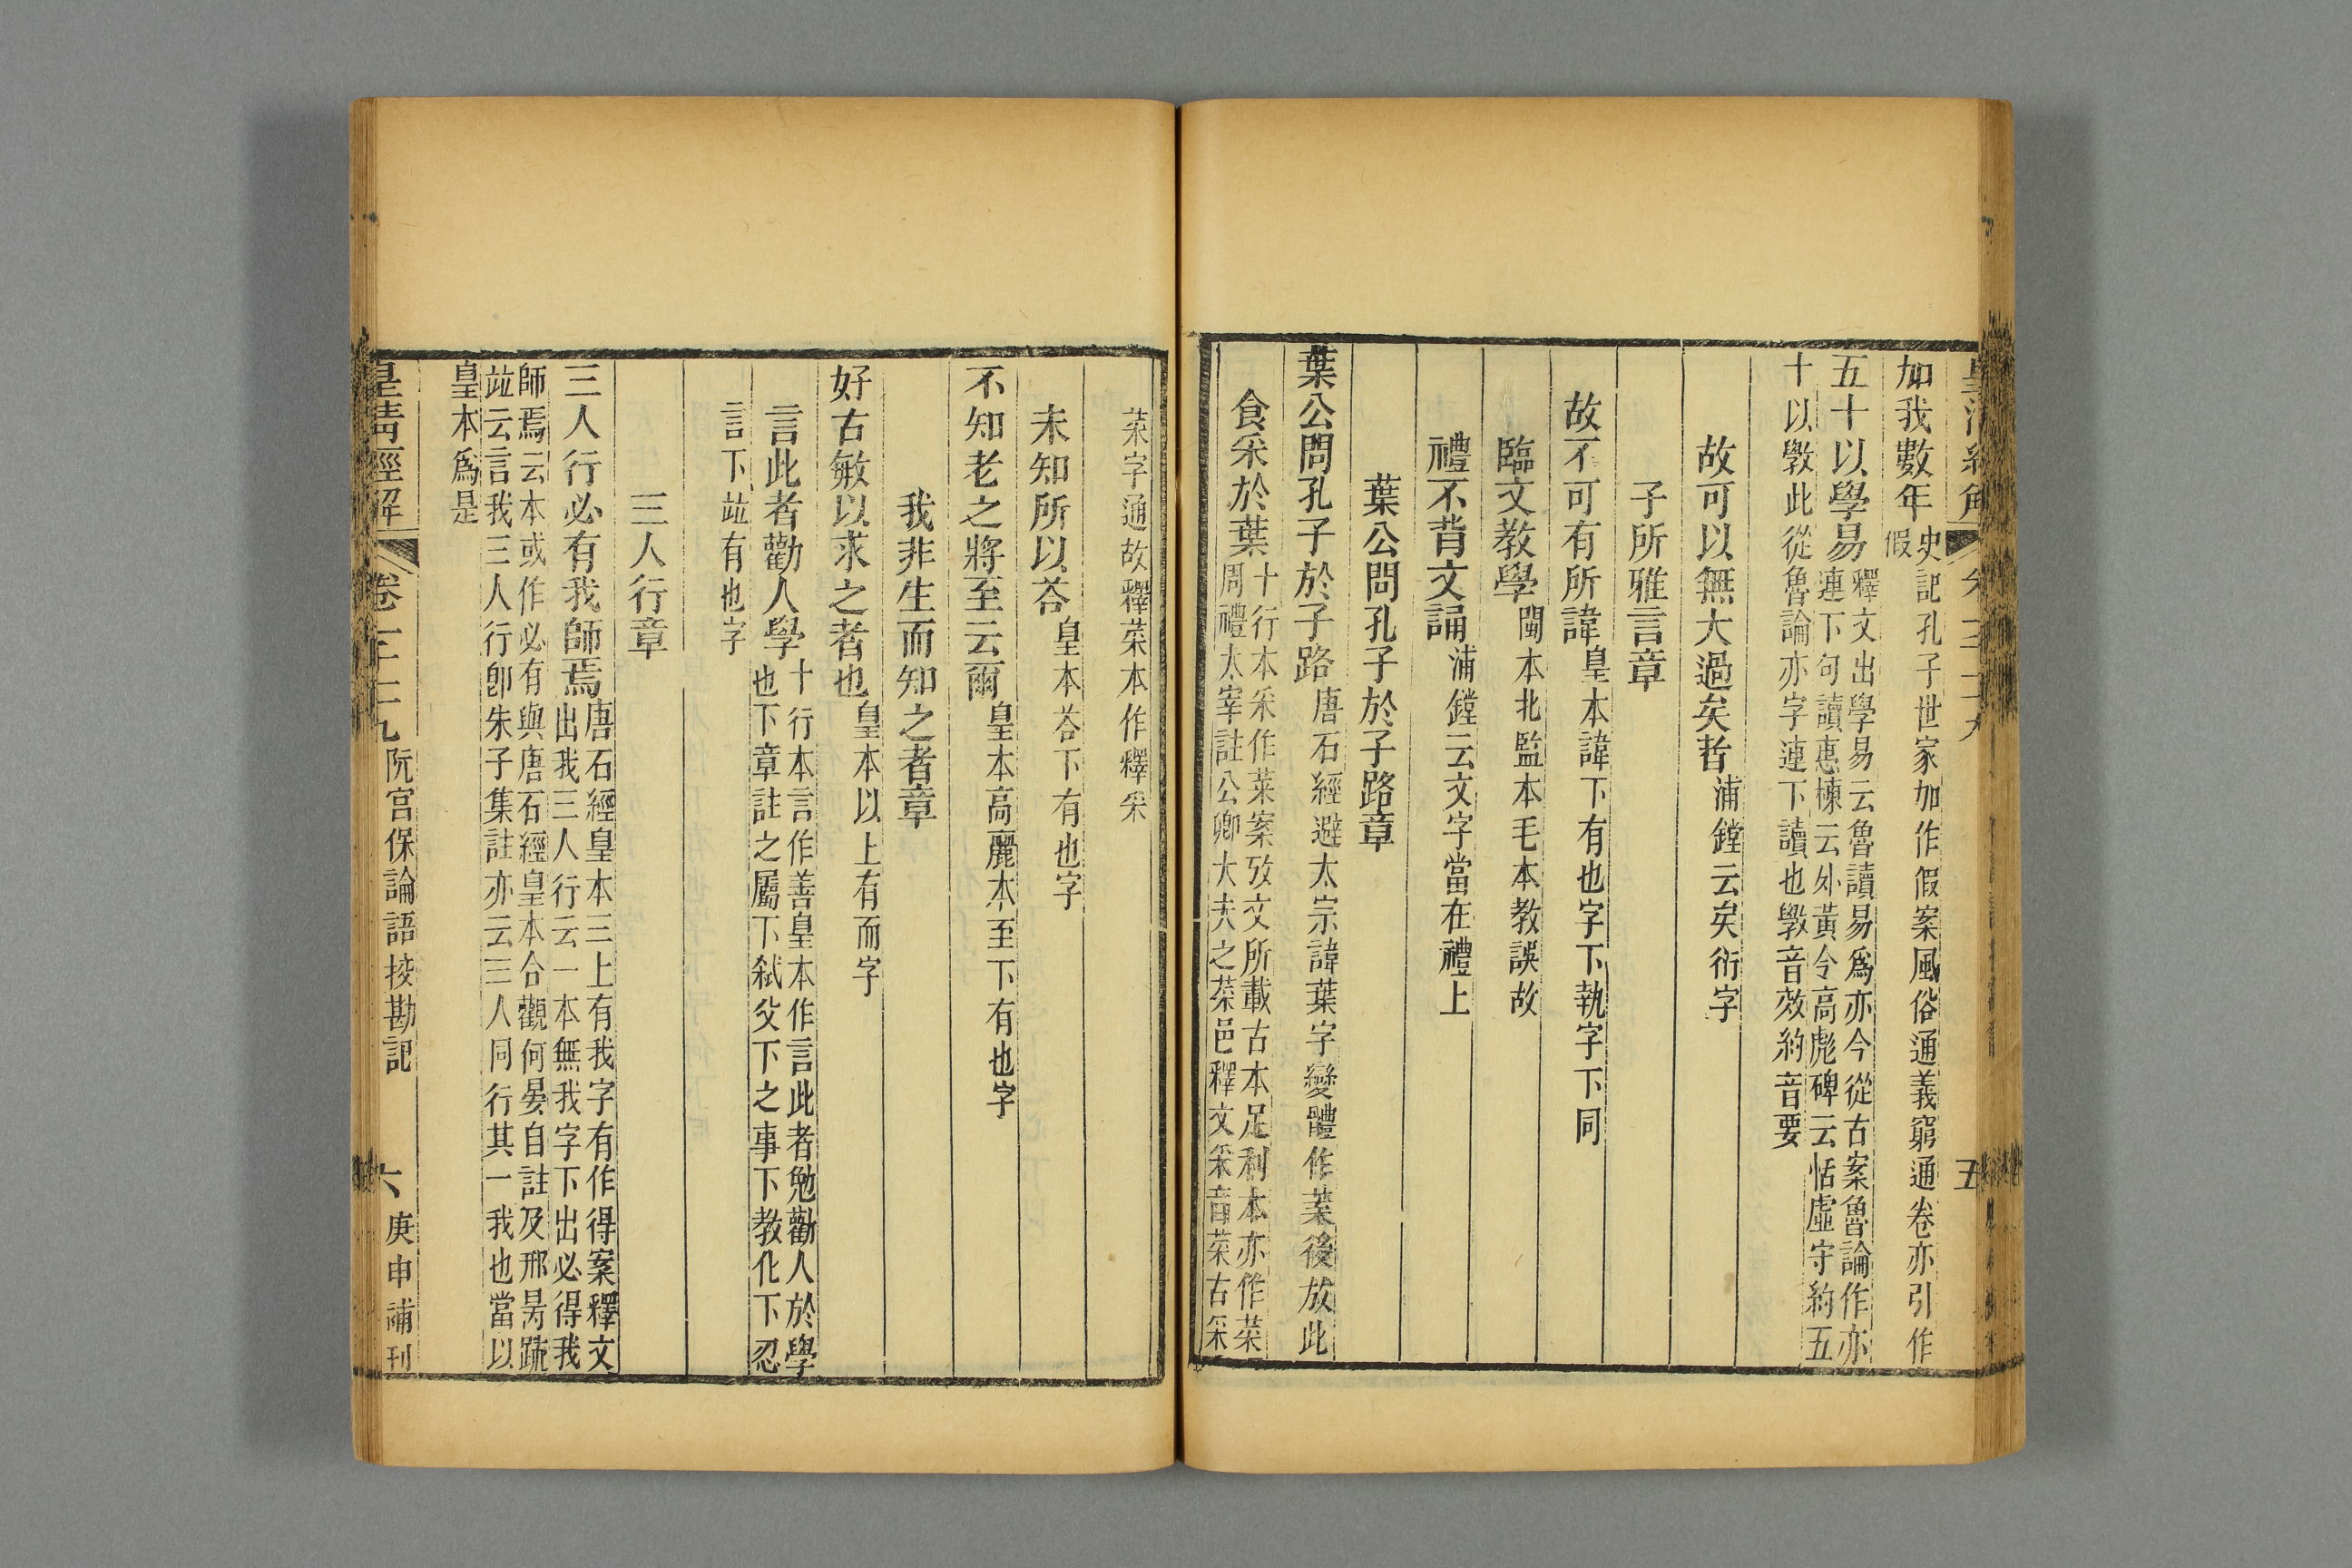 加我數年史記孔子世家加作假案風俗通義窮通卷亦引作
假
五十以學易釋文出學易云魯讀易爲亦今從古案魯論作亦
連下句讀惠棟云外黃令高彪碑云恬虛守約五
十以斆此從魯論亦字連下讀也斆音效約音要
故可以無大過矣者浦鏜云矣衍字
子所雅言章
故不可有所諱皇本諱下有也字下執字下同
臨文教學閩本北監本毛本教誤故
禮不背文誦浦鏜云文字當在禮上
葉公問孔子於子路章
葉公問孔子於子路唐石經避太宗諱葉字變體作䒑後放此
食采於葉十行本采作菜案攷文所載古本足利本亦作菜
周禮太宰註公卿大夫之菜邑釋文采音菜古采
五
菜字通故釋菜本作釋采
未知所以荅皇本荅下有也字
不知老之將至云爾皇本高麗本至下有也字
我非生而知之者章
好古敏以求之者也皇本以上有而字
言此者勸人學十行本言作善皇本作言此者勉勸人於學
也下章註之屬下弒父下之事下教化下忍
言下竝有也字
三人行章
三人行必有我師焉唐石經皇本三上有我字有作得案釋文
出我三人行云一本無我字下出必得我
師焉云本或作必有與唐石經皇本合觀何晏自註及邢昺疏
竝云言我三人行卽朱子集註亦云三人同行其一我也當以
皇本爲是
皇清經解
卷一千二十九
阮宮保論語挍勘記
六
庚申補刊